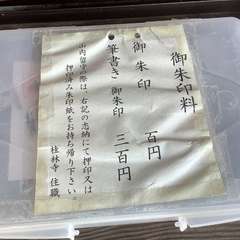 御朱印料
御朱印 百円
筆書き 御朱印 三百円
山内留守の際は、右記の志納にて押印又は
押印済み朱印紙をお持ち帰り下さい。
桂林寺 住職